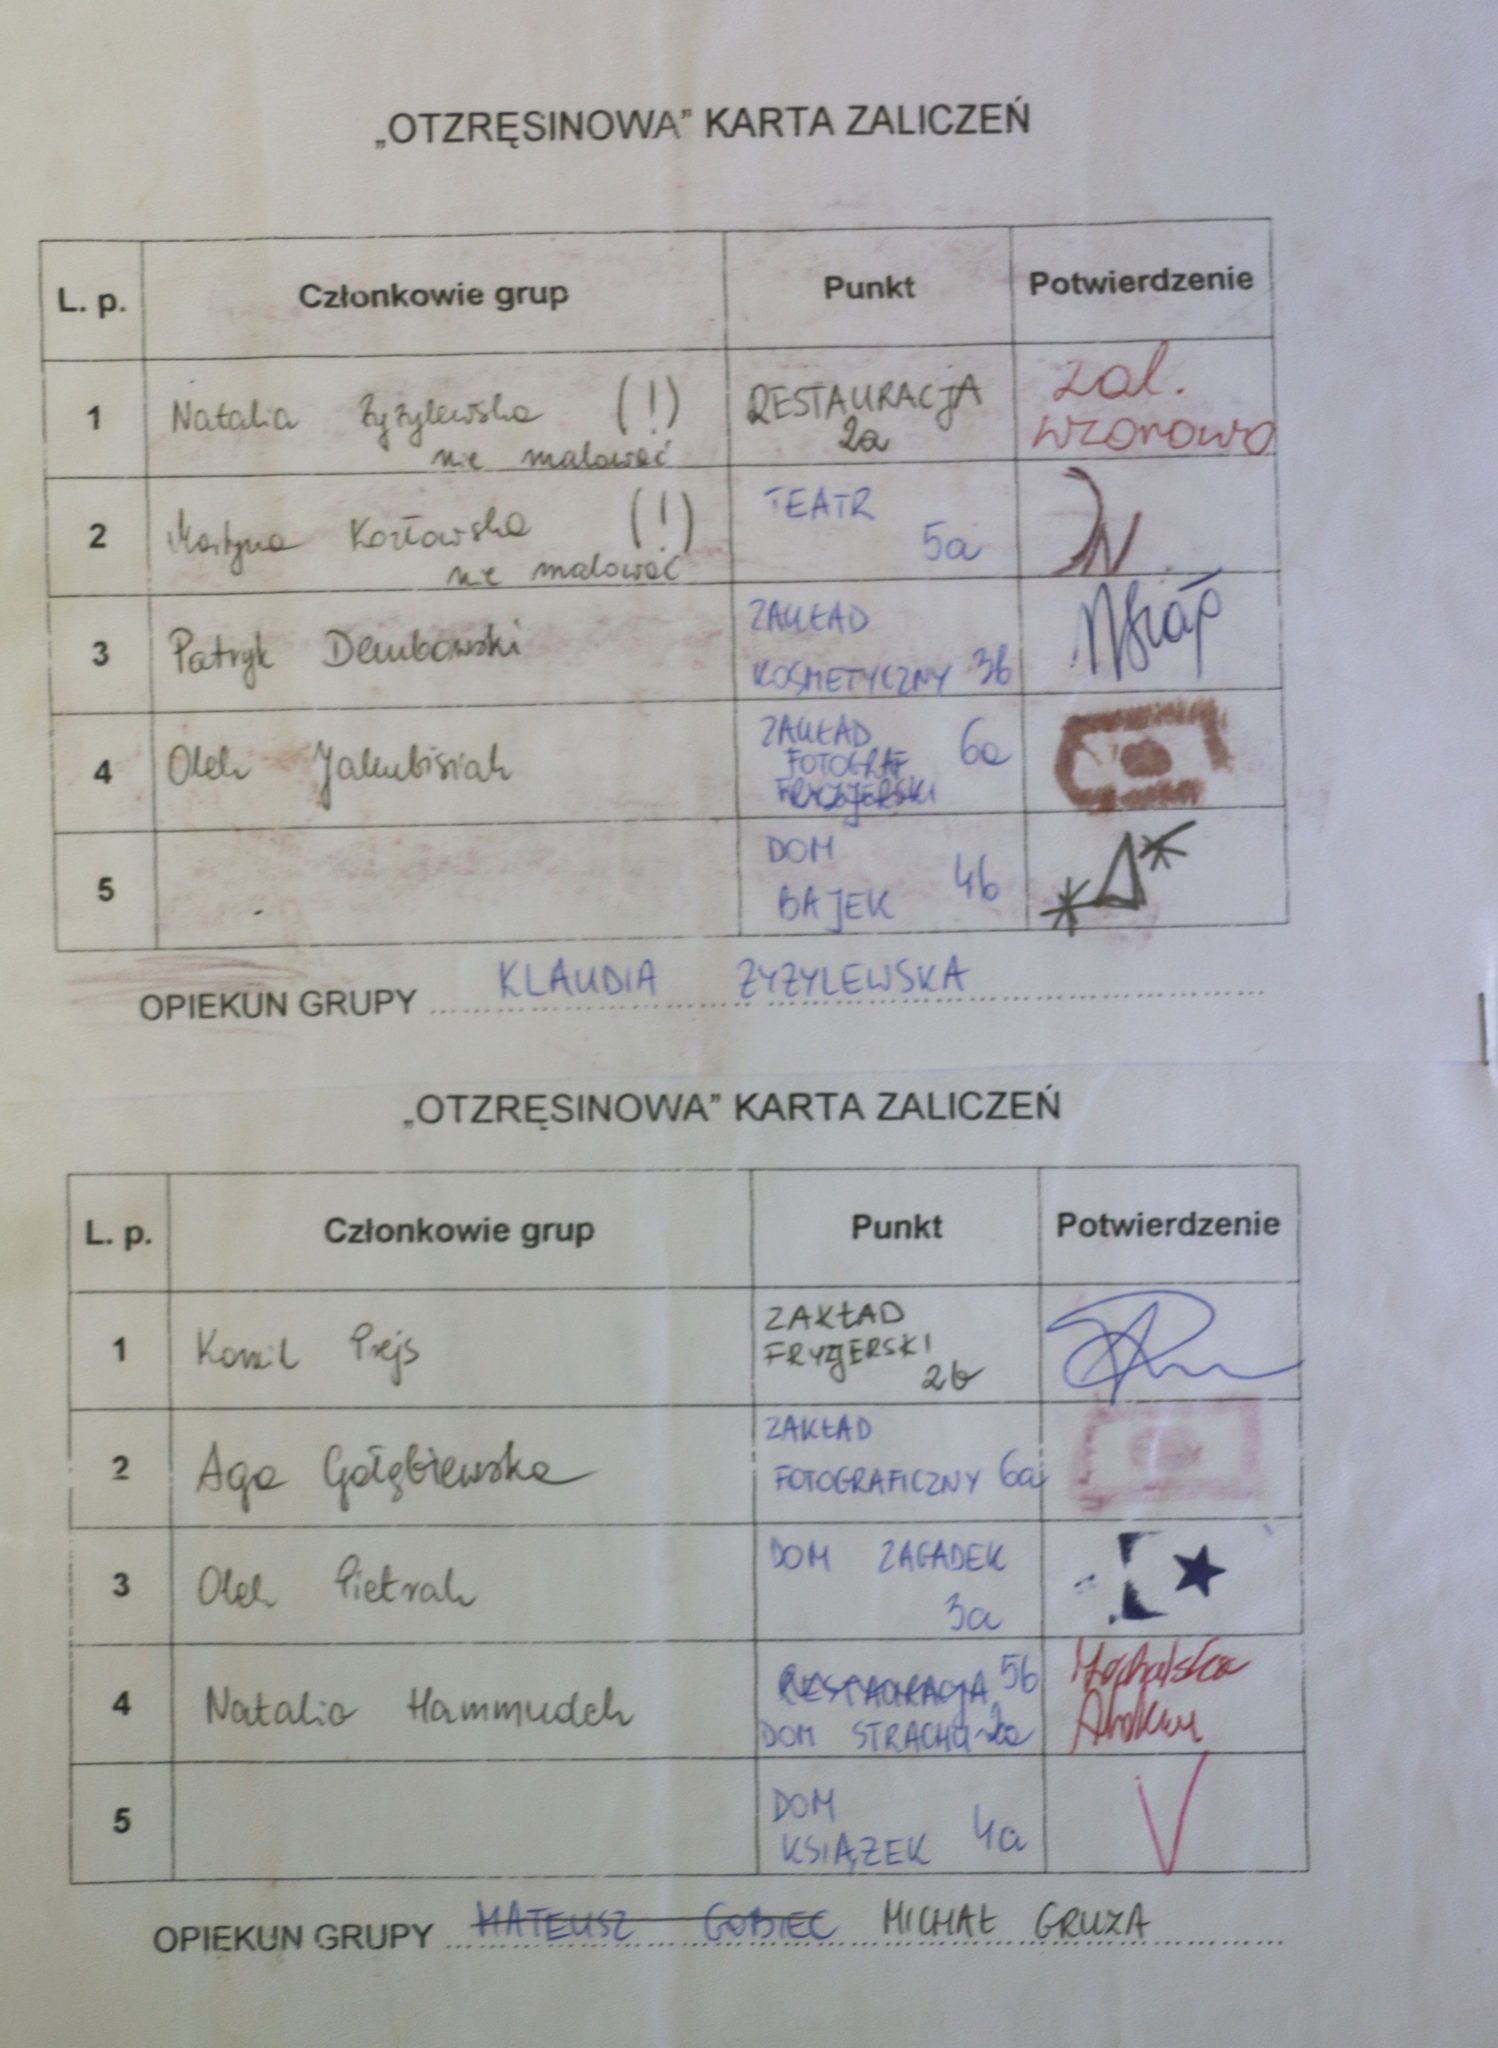 „OTZRĘSINOWA” KARTA ZALICZEŃ
L. p. Członkowie grup Punkt Potwierdzenie
1 Natalia Zyzylewska (!) RESTAURACJA zal.
nie malować 2a wzorowo
2 Martyna Kozłowska (!) TEATR
nie malować 5a
3 Patryk Dembowski ZAKŁAD
KOSMETYCZNY 3b
4 Olek Jakubisiak ZAKŁAD 6a
FOTOGRAF
FRYZJERSKI
5 DOM 4b
BAJEK
OPIEKUN GRUPY KLAUDIA ZYZYLEWSKA
„OTZRĘSINOWA” KARTA ZALICZEŃ
L. p. Członkowie grup Punkt Potwierdzenie
1 Kamil Prejs ZAKŁAD
FRYZJERSKI
2b
2 Aga Gołębiewska ZAKŁAD
FOTOGRAFICZNY 6a
3 Olek Pietrak DOM ZAGADEK
3a
4 Natalia Hammudeh RESTAURACJA 5b
DOM STRACHU
5 DOM
KSIĄŻEK 4a
OPIEKUN GRUPY MATEUSZ GOBIEC MICHAŁ GRUZA